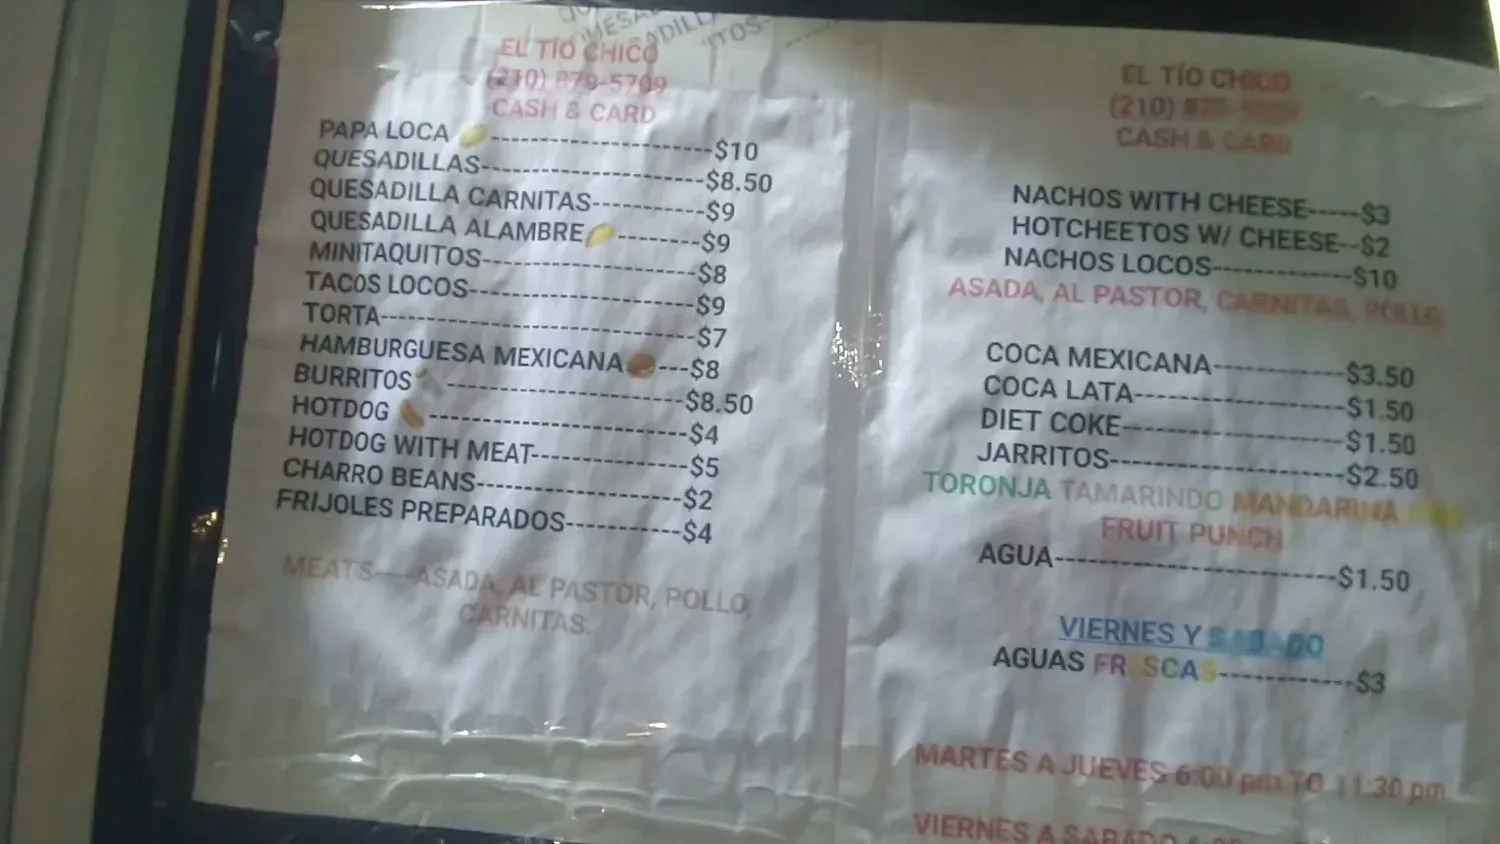 EL TÍO CHICO
(210) 879-5709
CASH & CARD
PAPA LOCA ---------------------$10
QUESADILLAS---------------------$8.50
QUESADILLA CARNITAS-----------$9
QUESADILLA ALAMBRE --------$9
MINITAQUITOS--------------------$8
TACOS LOCOS---------------------$9
TORTA-----------------------------$7
HAMBURGUESA MEXICANA ---$8
BURRITOS ----------------------$8.50
HOTDOG ------------------------$4
HOTDOG WITH MEAT---------------$5
CHARRO BEANS-------------------$2
FRIJOLES PREPARADOS-----------$4
MEATS----ASADA, AL PASTOR, POLLO,
CARNITAS.
EL TÍO CHICO
(210)
CASH & CARD
NACHOS WITH CHEESE-----$3
HOTCHEETOS W/ CHEESE--$2
NACHOS LOCOS-------------$10
ASADA, AL PASTOR, CARNITAS, POLLO
COCA MEXICANA------------$3.50
COCA LATA--------------------$1.50
DIET COKE---------------------$1.50
JARRITOS----------------------$2.50
TORONJA TAMARINDO MANDARINA
FRUIT PUNCH
AGUA---------------------------$1.50
VIERNES Y SABADO
AGUAS FRESCAS------------$3
MARTES A JUEVES 6:00 pm TO 11:30 pm
VIERNES A SABADO